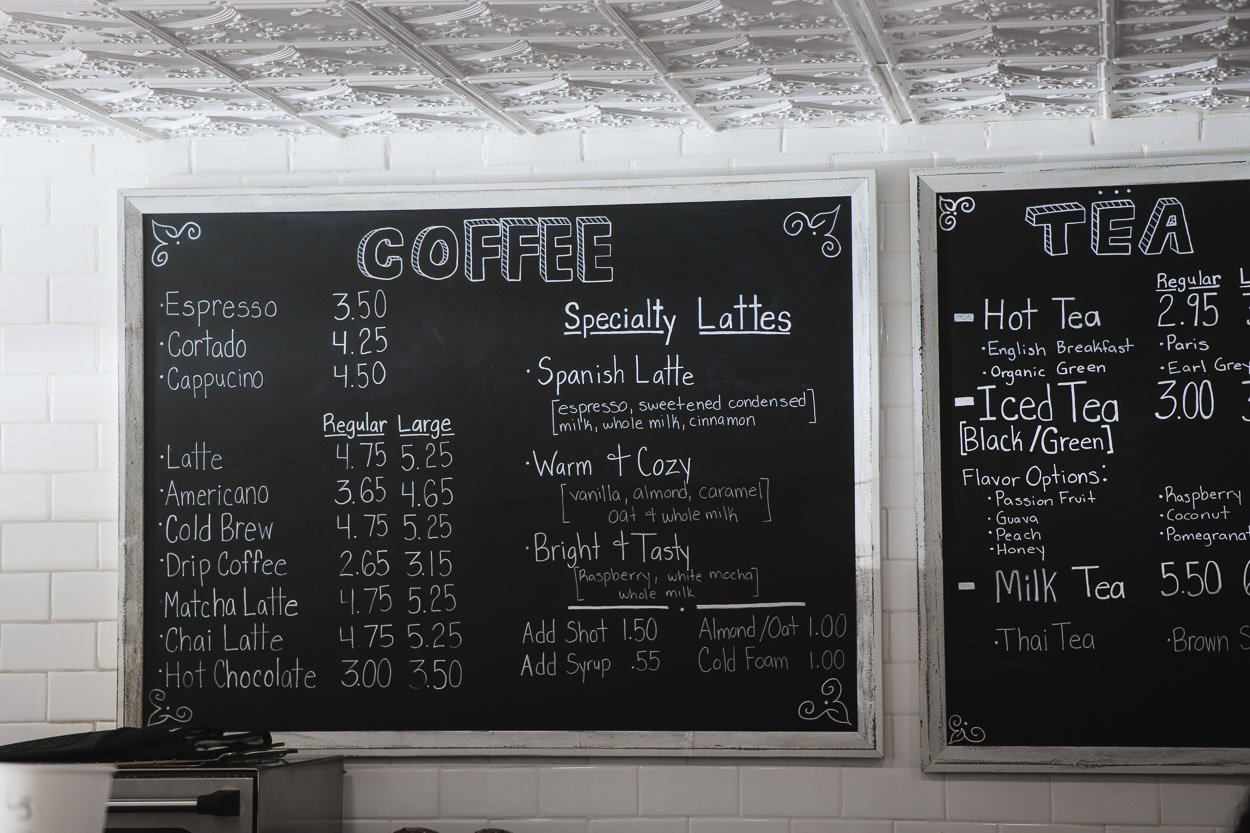 COFFEE
·Espresso 3.50
·Cortado 4.25
·Cappucino 4.50
Regular Large
·Latte 4.75 5.25
·Americano 3.65 4.65
·Cold Brew 4.75 5.25
·Drip Coffee 2.65 3.15
·Matcha Latte 4.75 5.25
·Chai Latte 4.75 5.25
·Hot Chocolate 3.00 3.50
Specialty Lattes
·Spanish Latte
[espresso, sweetened condensed
milk, whole milk, cinnamon]
·Warm & Cozy
[vanilla, almond, caramel
oat & whole milk]
·Bright & Tasty
[Raspberry, white mocha
whole milk]
Add Shot 1.50 Almond/Oat 1.00
Add Syrup .55 Cold Foam 1.00
TEA
Regular
- Hot Tea 2.95
·English Breakfast ·Paris
·Organic Green ·Earl Grey
- Iced Tea 3.00
[Black/Green]
Flavor Options:
·Passion Fruit ·Raspberry
·Guava ·Coconut
·Peach ·Pomegranat
·Honey
- Milk Tea 5.50
·Thai Tea ·Brown